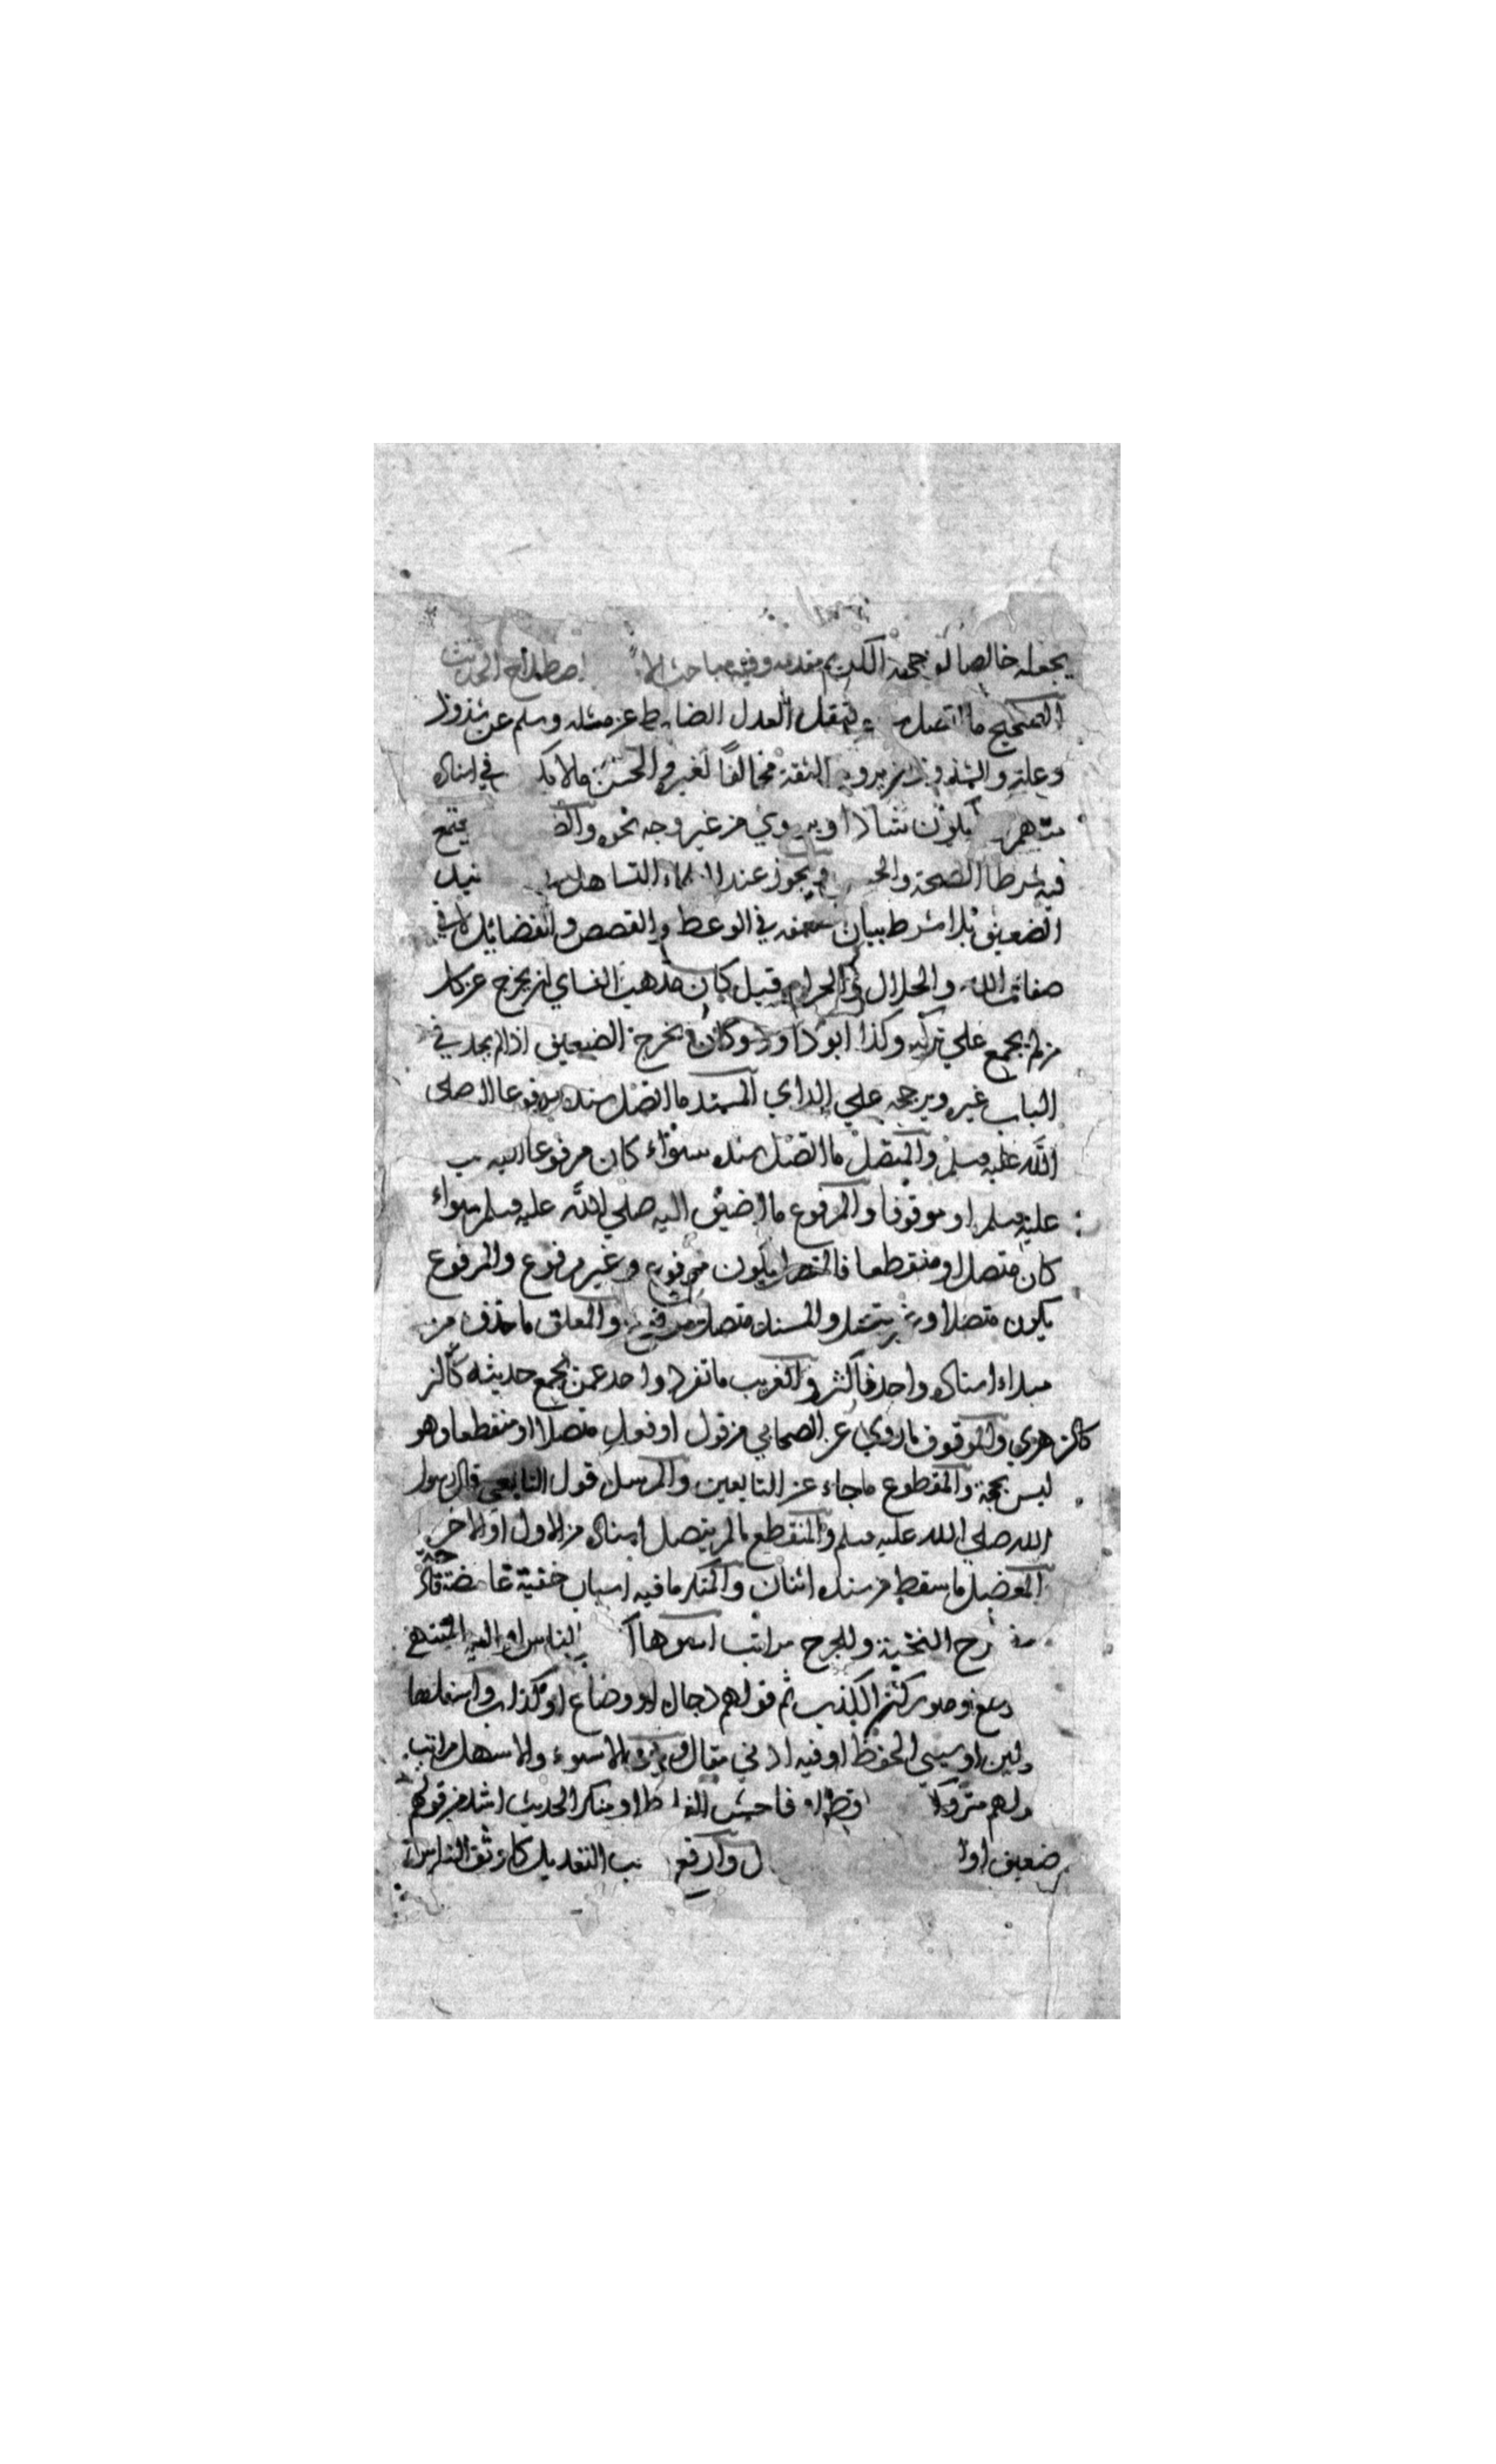 يجعله خالصا لوجهه الكريم مقدمة وفيه مباحث الا اصطلاح الحديث
الصحيح ما اتصل بنقل العدل الضابط عن مثله وسلم عن شذوذ
وعلة والشذوذ ان يرويه الثقة مخالفا لغيره والحسن ما لا يكـ في اسناده
متهم يكون شاذا او يروي من غير وجه نحوه والضـ يجتمع
فيه شرط الصحة والحـ ويجوز عند العلماء التساهل
الضعيف بلا شرط بيان ضعفه في الوعظ والقصص والفضائل لا في
صفات الله والحلال والحرام قيل كان مذهب النساي ان يخرج عن كل
من لم يجمع علي تركه وكذا ابو داود وكان يخرج الضعيف اذا لم يجد في
الباب غيره ويرجحه علي الراي المسند ما اتصل سنده مرفوعا صلى
الله عليه وسلم والمتصل ما اتصل سنده سواء كان مرفوعا اليه
عليه وسلم او موقوفا والمرفوع ما اضيف اليه صلي الله عليه وسلم سواء
كان متصلا او منقطعا فالمتصل يكون مرفوع وغير مرفوع والمرفوع
يكون متصلا وغير متصل والمسند متصل مرفوع والمعلق ما حذف من
مبداء اسناده واحد فاكثر والغريب ما تفرد واحد عمن يجمع حديثه
كالزهري والموقوف ما روي عن الصحابي من قول او فعل متصلا او منقطعا وهو
ليس بحجة والمقطوع ما جاء عن التابعين والمرسل قول التابعي قال رسول
الله صلي الله عليه وسلم والمنقطع ما لم يتصل اسناده من الاول او الاخر
المعضل ما سقط من سنده اثنان والمنكر ما فيه اسباب خفية غامضة قادحة
رح النخبة وللجرح مراتب اسوءها اكذب الناس او اليه المنتهي
ركن الكذب ثم قولهم دجال او وضاع او كذاب واسفلها
ولين او سيي الحفظ او فيه ادني مقال والاسهل مراتب
ولهم متروك فاحش الغلط او منكر الحديث اشد من قولهم
ضعيف او وارفع التعديل كاوثق الناس